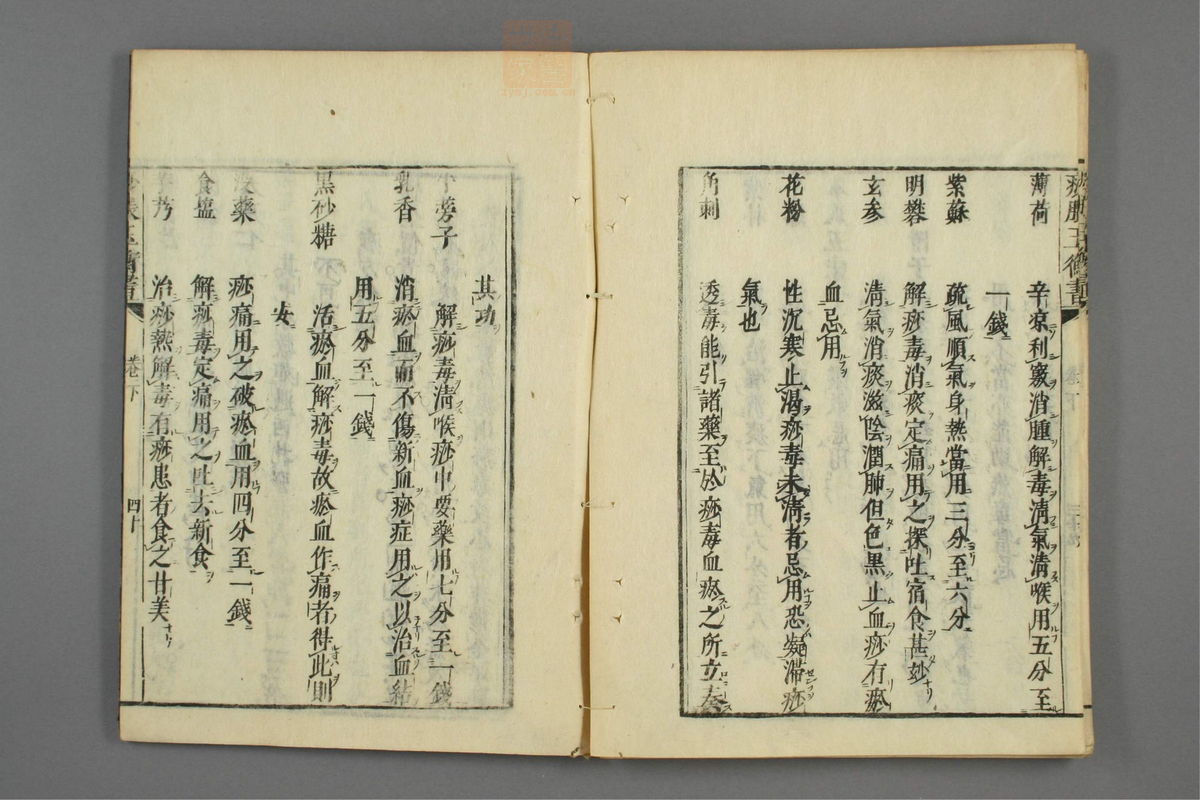 痧脹玉衡書
薄荷 辛凉利竅消腫解毒清氣清喉用五分至
一錢
紫蘇 疏風順氣身熱當用三分至六分
明礬 解痧毒消痰定痛用之探吐宿食甚妙
玄參 清氣消痰滋陰潤肺但色黑止血痧有瘀
血忌用
花粉 性沉寒止渴痧毒未清者忌用恐凝滯痧
氣也
角刺 透毒能引諸藥至於痧毒血瘀之所立奏
其功
牛蒡子 解痧毒清喉痧中要藥用七分至一錢
乳香 消瘀血而不傷新血痧症用之以治血結
用五分至一錢
黑砂糖 活瘀血解痧毒故瘀血作痛者得此則
安
沒藥 痧痛用之破瘀血用四分至一錢
食鹽 解痧毒定痛用之吐去新食
芍 治痧熱解毒有痧患者食之甘美
痧脹玉衡書 卷下 四十